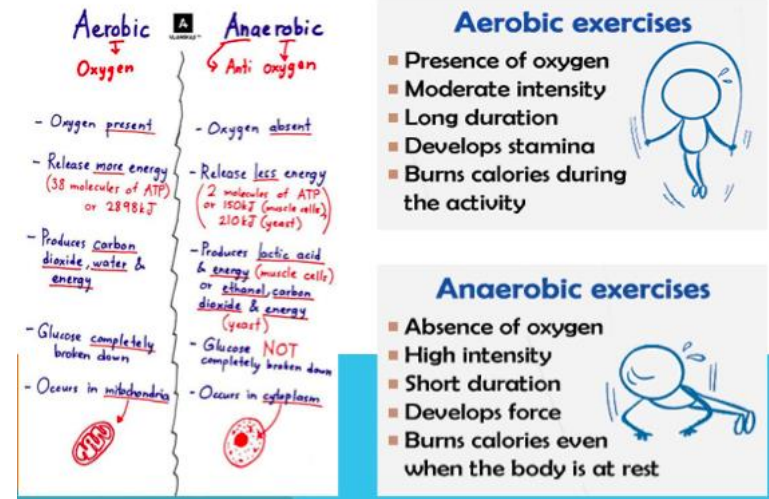 Aerobic
Oxygen
- Oxygen present
- Release more energy
(38 molecules of ATP)
or 2898kJ
- Produces carbon
dioxide, water &
energy
- Glucose completely
broken down
- Occurs in mitochondria
A
Anaerobic
Anti oxygen
- Oxygen absent
- Release less energy
(2 molecules of ATP
or 150kJ (muscle cells),
210kJ (yeast))
- Produces lactic acid
& energy (muscle cells)
or ethanol, carbon
dioxide & energy
(yeast)
- Glucose NOT
completely broken down
- Occurs in cytoplasm
Aerobic exercises
▪ Presence of oxygen
▪ Moderate intensity
▪ Long duration
▪ Develops stamina
▪ Burns calories during
the activity
Anaerobic exercises
▪ Absence of oxygen
▪ High intensity
▪ Short duration
▪ Develops force
▪ Burns calories even
when the body is at rest